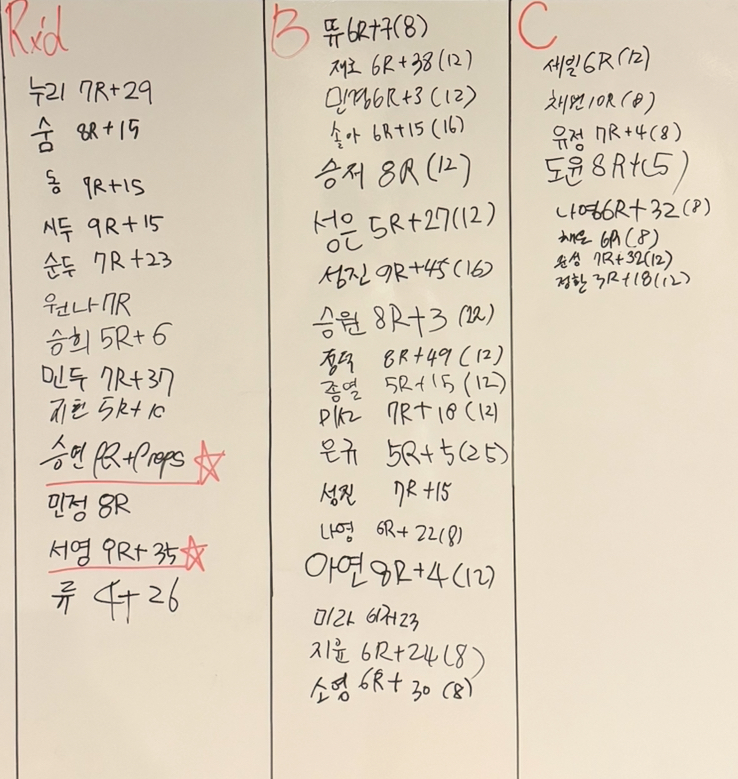 Rx'd
누리 7R+29
숨 8R+15
동 9R+15
시두 9R+15
순두 7R+23
원나 7R
승희 5R+6
민두 7R+37
지현 5R+10
승연 R+reps
민정 8R
서영 9R+35
류 4+26
B
뜌 6R+7(8)
재호 6R+38(12)
민경 6R+3(12)
솔아 6R+15(16)
승저 8R(12)
성은 5R+27(12)
성진 9R+45(16)
승원 8R+3(22)
정덕 8R+49(12)
종열 5R+15(12)
7R+18(12)
은규 5R+5(25)
성진 7R+15
나영 6R+22(8)
아연 8R+4(12)
미라
지윤 6R+24(8)
소영 6R+30(8)
C
세빌 6R(12)
채현 10R(8)
유정 7R+4(8)
도윤 8R+(5)
나영 6R+32(8)
채은 6R(8)
윤성 7R+32(12)
정환 3R+18(12)